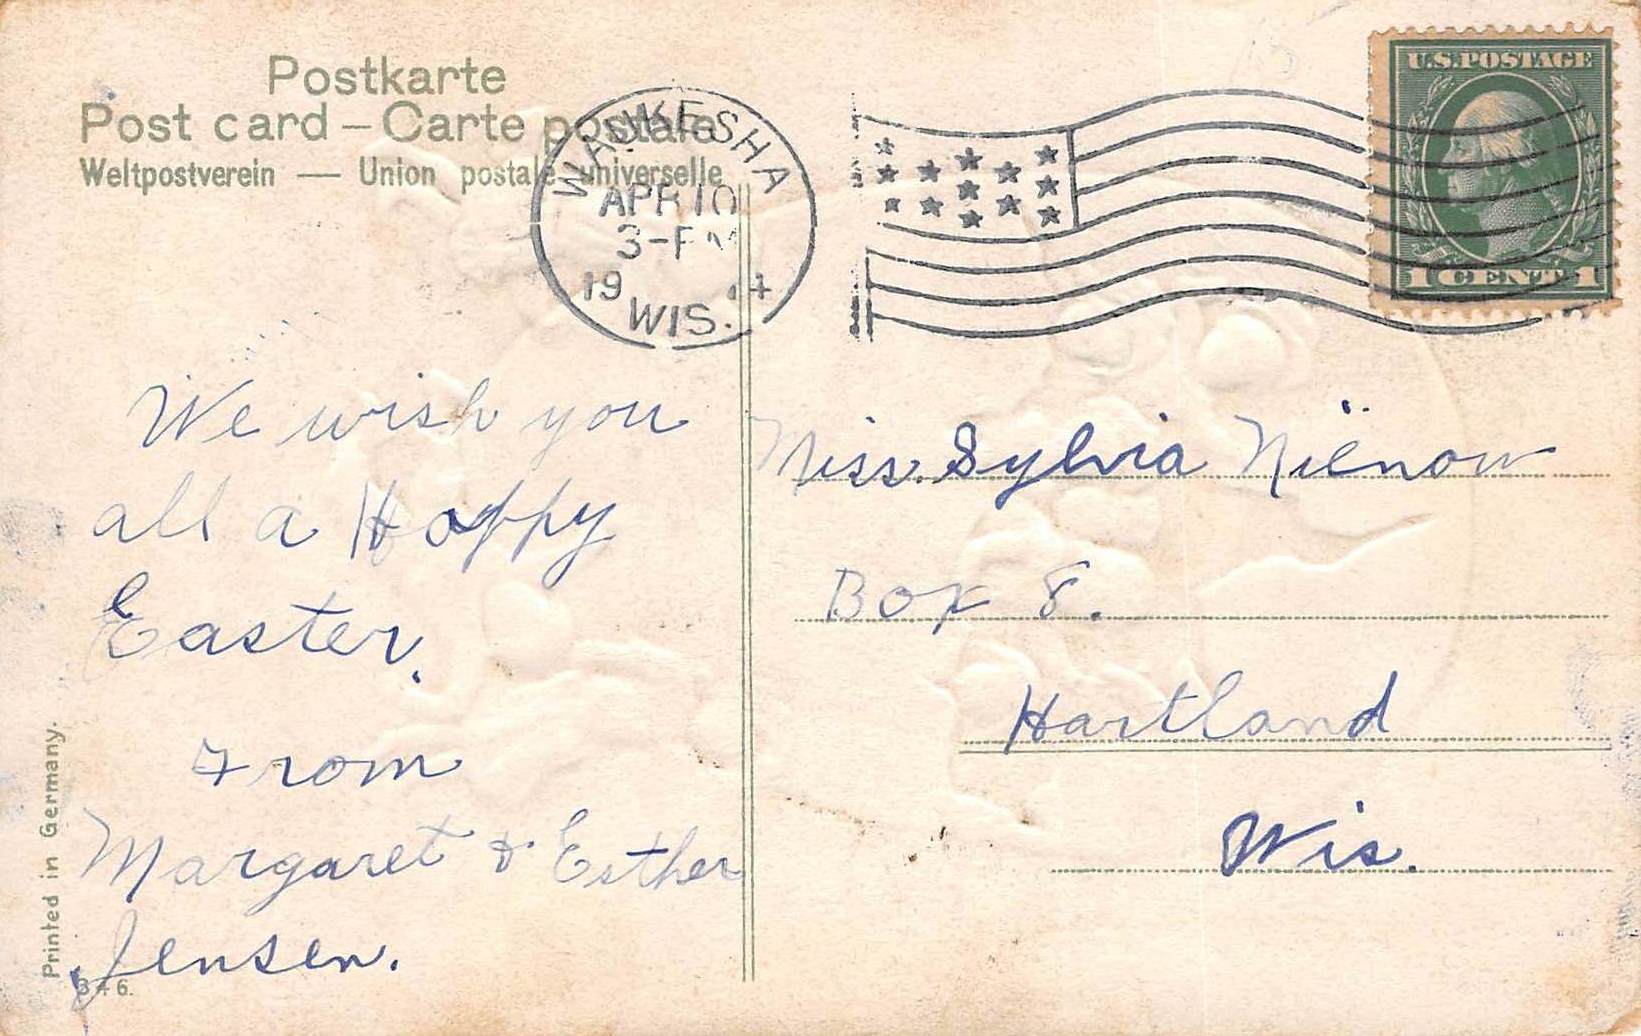 Postkarte
Post card – Carte postale
Weltpostverein — Union postale universelle
WAUKESHA
APR 10
3-PM
19 14
WIS.
U.S. POSTAGE
1 CENT 1
We wish you
all a Happy
Easter.
From
Margaret & Esther
Jensen.
Miss. Sylvia Nienow
Box 8.
Hartland
Wis.
Printed in Germany.
346.